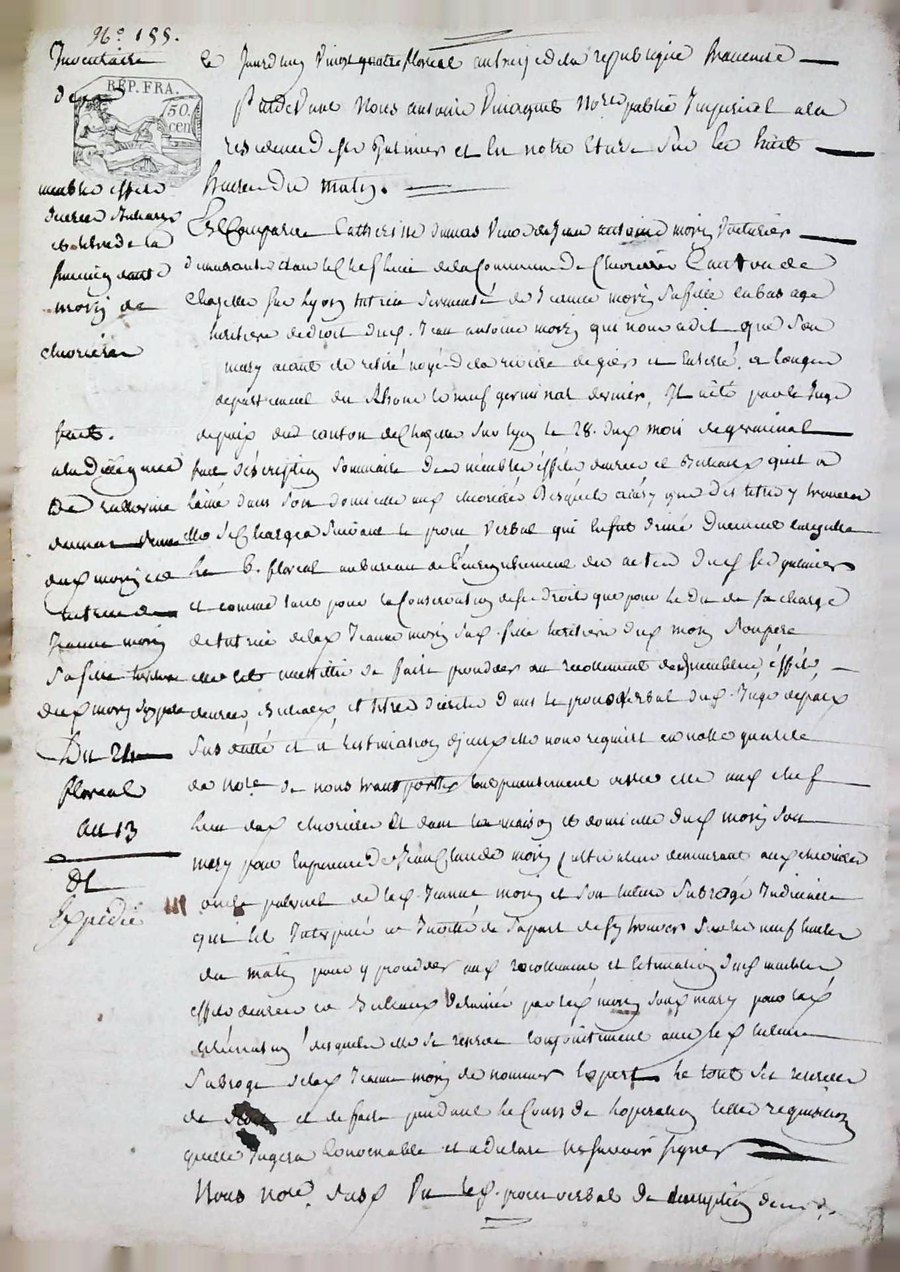 N° 155.
Inventaire
des
RÉP. FRA.
50
cen
meubles effets
denrées bestiaux
et titres de la
succession dant.
morin de
chevrières
fait.
a la diligence
De catherine
dumas veuve
dud morin et
tutrice de
Jeanne morin
sa fille héritière
dud morin son père
Du 24
floréal
an 13
Expédié
Ce Jourd'huy Vingt quatre floréal an treize de la république francaise
Pardevant Nous antoine Vinaques Notre public Impérial a la
résidence de St Galmier et En notre Etude sur les huit
heures du matin.
Est Comparue Catherine dumas Veuve de Jean antoine morin voiturier
demeurante dans le Chef lieu de la Commune de Chevrières Canton de
Chazelles sur Lyon tutrice sermentée de Jeanne morin sa fille en bas age
héritière de droit dud. Jean antoine morin qui nous a dit que son
mary aiant été retiré noyé de la rivière de gier et enterré, a longes
departement du Rhone le neuf germinal dernier, Il a été par le Juge
de paix dud canton de Chazelles sur Lyon le 28. dud mois de germinal
fait description sommaire des meubles effets denrées et bestiaux quil a
laissé dans son domicile aud chevrières desquels ainsy que des titres y trouvés
elle se chargea suivant le procès verbal qui en fut dressé duement enregistré
le 6. floréal au bureau de l'enregistrement des actes dud St galmier
et comme tant pour la Conservation de ses droits que pour le dû de sa charge
de tutrice de lad Jeanne morin sad. fille héritière dud morin son père
elle est intention de faire procéder au recollement desd meubles effets
denrées, bestiaux, et titres décrits dans le procès verbal dud. Juge de paix
sus datté et a lestimation diceux elle nous requiert en notre qualité
de notre de nous transporter tout présentement avec elle aud chef
lieu dud chevrières et dans la maison et domicile dud morin son
mary pour en présence de Jean Claude morin cultivateur demeurant aud chevrières
oncle paternel de lad. Jeanne morin et son tuteur subrogé Judiciaire
qui est Interpellé et Invité de sa part de sy trouver sur les neuf heures
du matin pour y procéder aud recollement et estimation desd meubles
effets denrées et bestiaux délaissés par led morin sond mary pour lad
estimation desquels elle se réserve conjointement avec led tuteur
subrogé de lad Jeanne morin de nommer Expert le tout sous réserves
de droit et de faire pendant le Cours de lopération telles réquisitions
quelle Jugera Convenable et a déclaré ne savoir signer
Nous Notre susd Vu led. procès verbal de description des